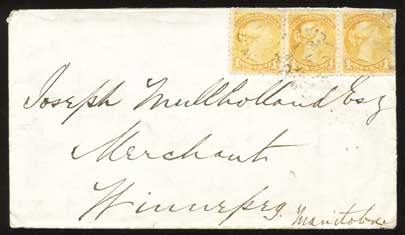 Joseph Mullholland Esq
Merchant
Winnipeg. Manitoba